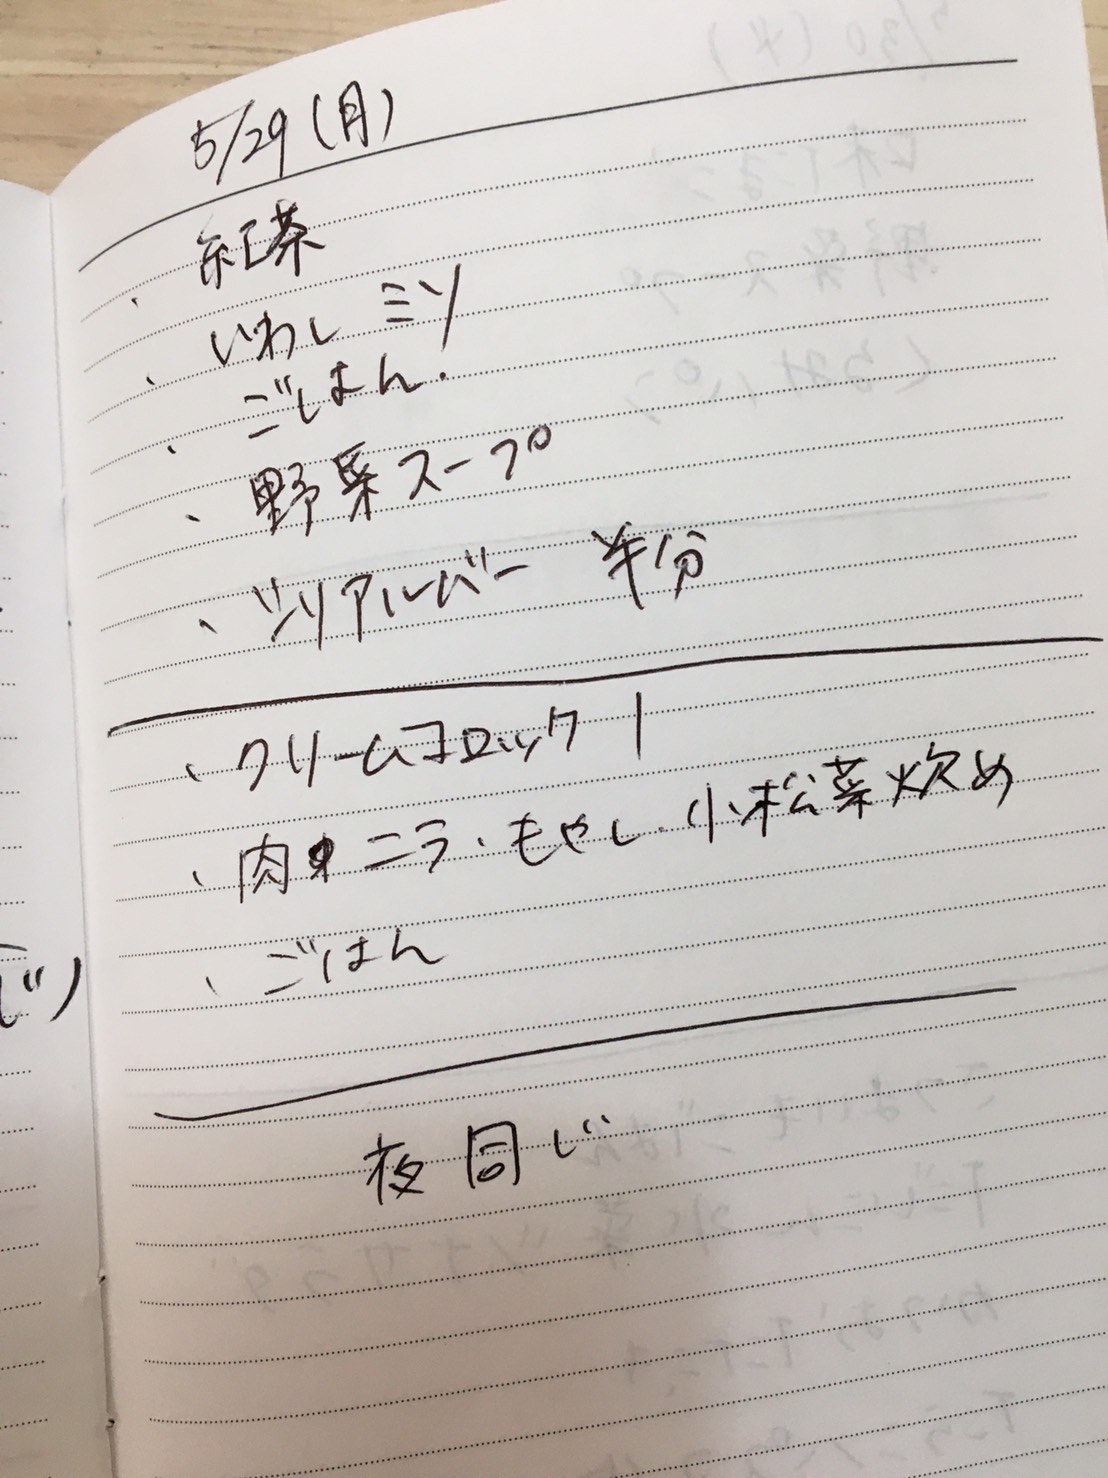 5/29(月)
、紅茶
、いわしミソ
、ごはん.
、野菜スープ
、シリアルバー 半分
、クリームコロッケ 1
、肉 ニラ、もやし、小松菜炊め
、ごはん
夜同じ
じ)